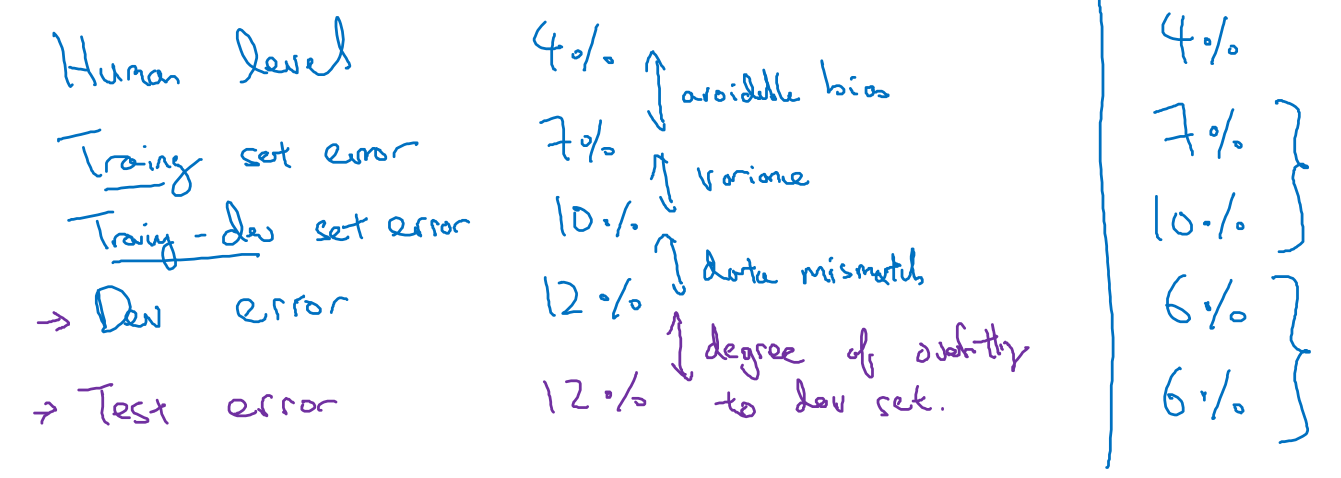 Human level 4% 4%
avoidable bias
Traing set error 7% 7%
variance
Traing-dev set error 10% 10%
data mismatch
→ Dev error 12% 6%
degree of overfitting
→ Test error 12% to dev set. 6%